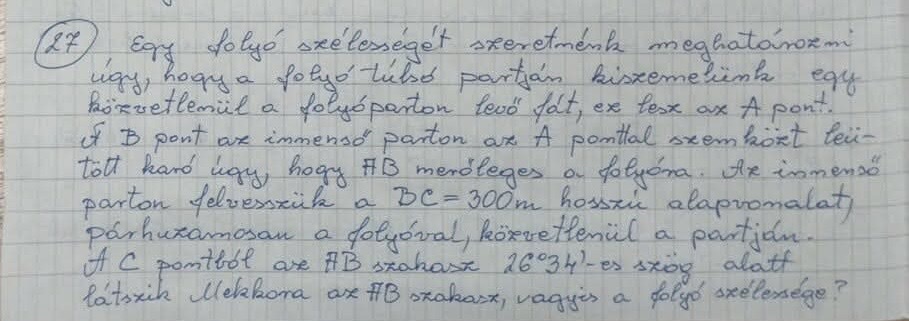 27 Egy folyó szélességét szeretnénk meghatározni
úgy, hogy a folyó túlsó partján kiszemelünk egy
közvetlenül a folyóparton levő fát, ez lesz az A pont.
A B pont az innenső parton az A ponttal szemközt leü-
tött karó úgy, hogy AB merőleges a folyóra. Az innenső
parton felvesszük a BC = 300m hosszú alapvonalat,
párhuzamosan a folyóval, közvetlenül a partján.
A C pontból az AB szakasz 26°34'-es szög alatt
látszik Mekkora az AB szakasz, vagyis a folyó szélessége?